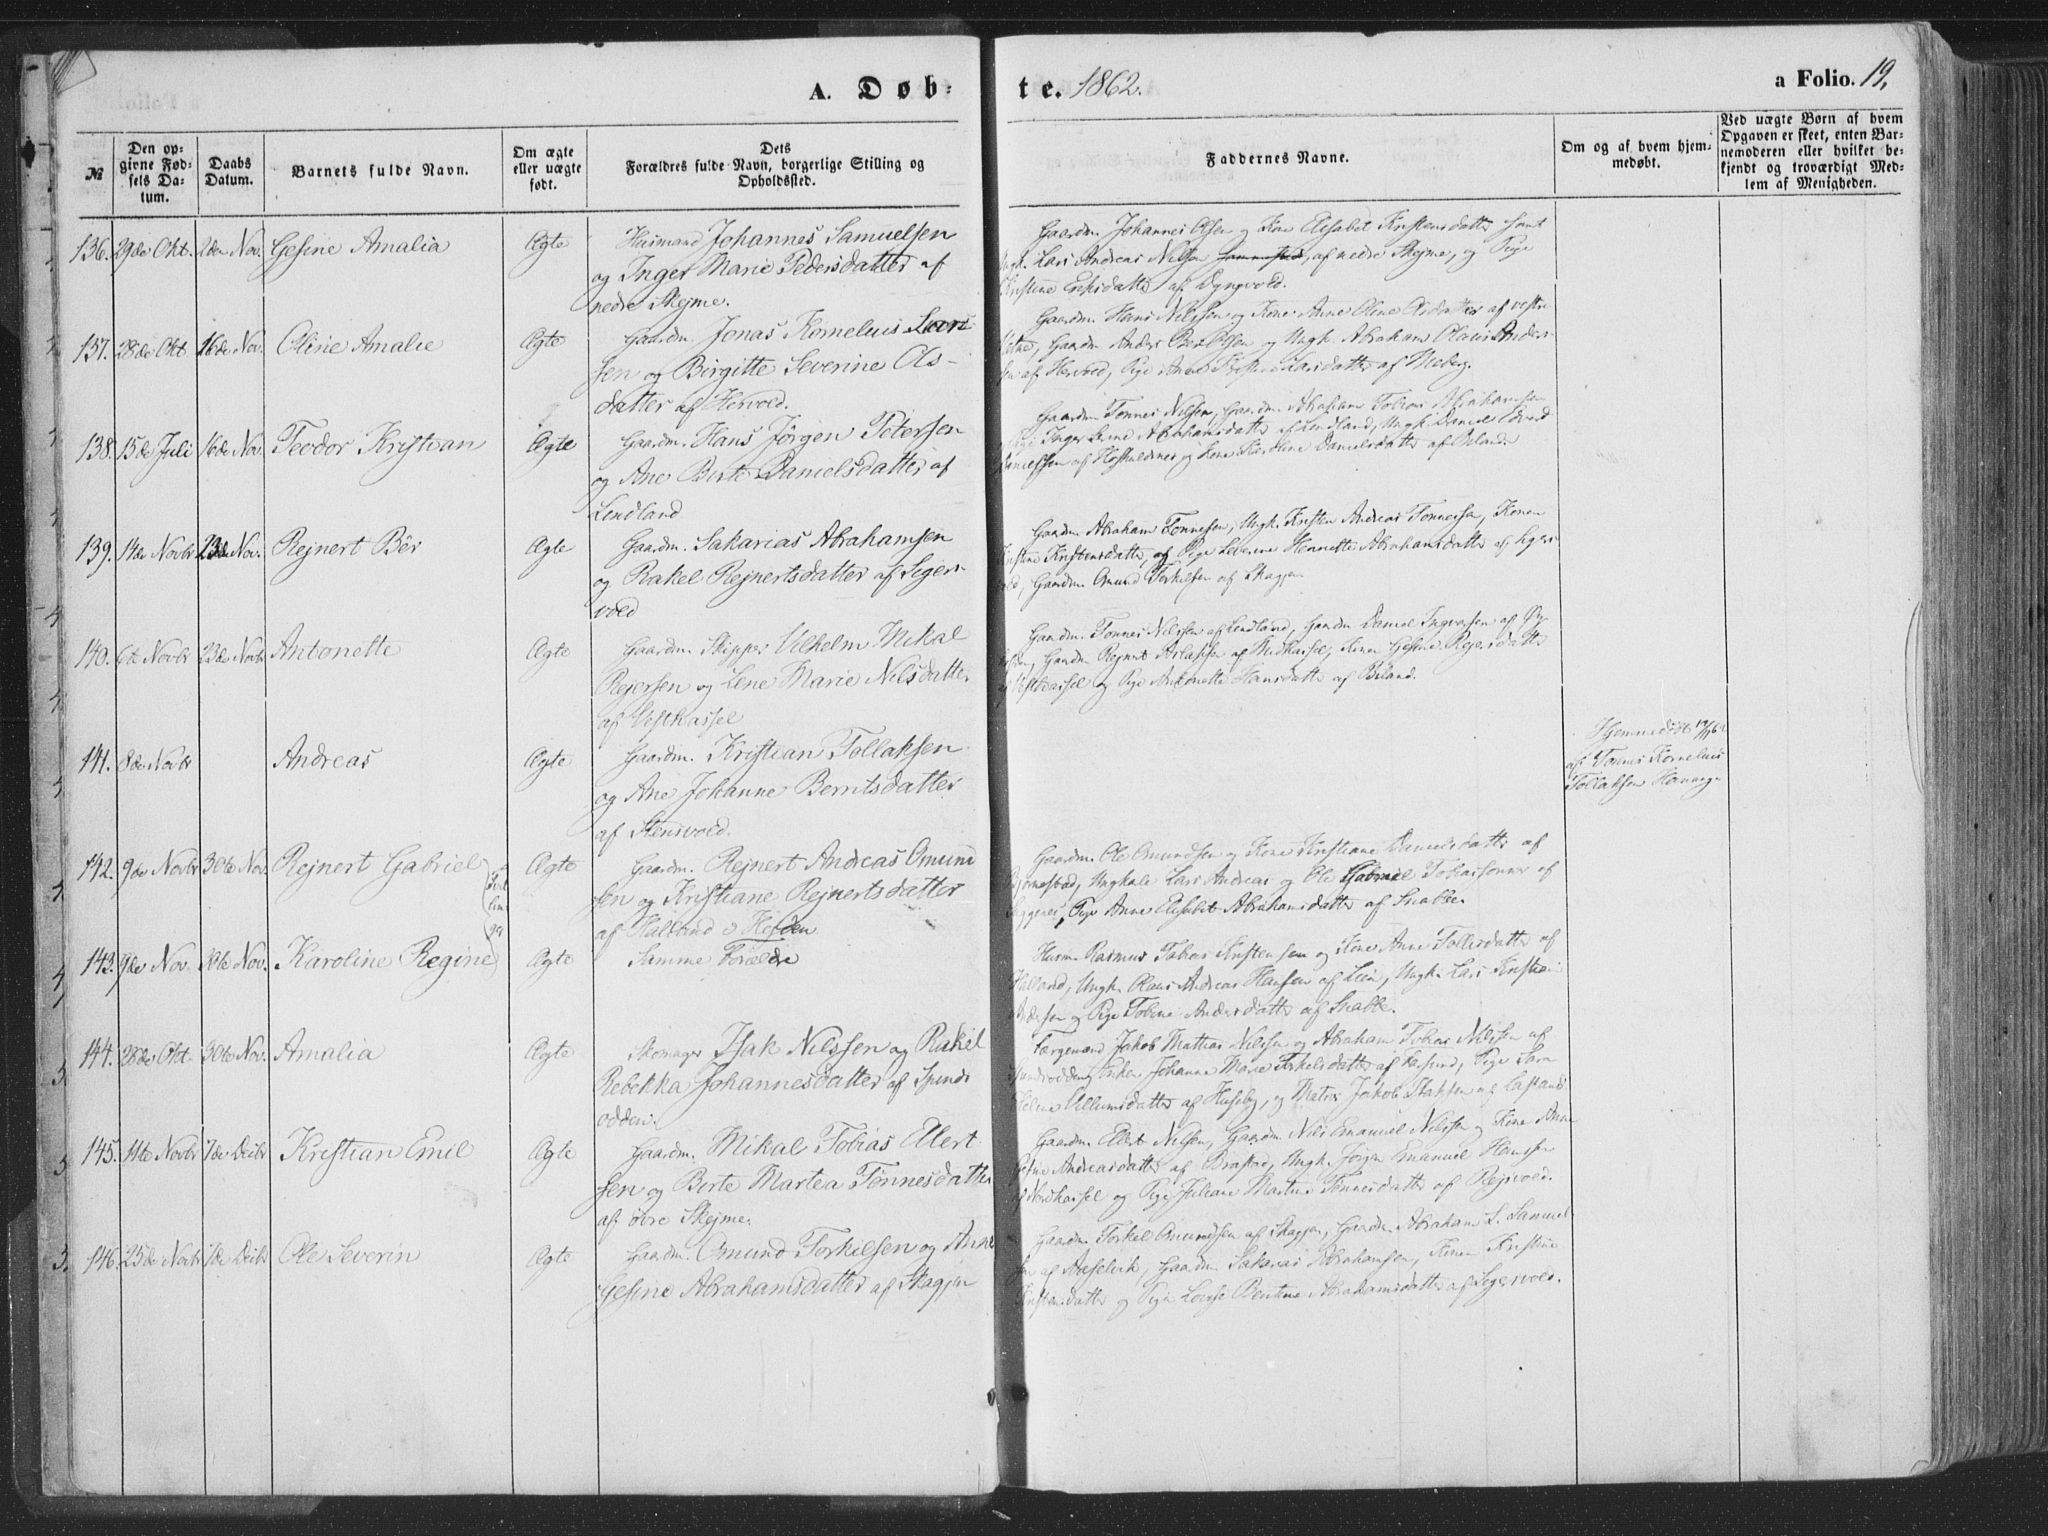 A. Døb-
te. 1862.
a Folio. 19.
№
Den op-
givne Fød-
sels Da-
tum.
Daabs
Datum.
Barnets fulde Navn.
Om ægte
eller uægte
født.
Dets
Forældres fulde Navn, borgerlige Stilling og
Opholdssted.
Faddernes Navne.
Om og af hvem hjem-
medøbt.
Ved uægte Børn af hvem
Opgaven er skeet, enten Bar-
nemoderen eller hvilket be-
kjendt og troværdigt Med-
lem af Menigheden.
136. 29de Okt. 2den Nov. Gesine Amalia Ægte Husmand Johannes Samuelsen
og Inger Marie Pedersdatter af
nedre Skejme.
Gaardm. Johannes Olsen og Kone Elisabet Kristensdatter samt
Ungk. Lars Andreas Nilsen af nedre Skejme, og Pige
Kristine Eriksdatter af Dyngvold.
137. 28de Okt 16de Nov. Oline Amalie Ægte Gaardm. Jonas Kornelius Lars-
sen og Birgitte Severine Ols-
datter af Hervold.
Gaardm. Hans Nilssen og Kone Anne Oline Olsdatter af vestre
Gaardm Anders Olsen og Ungk. Abraham Olaus Anders-
sen af Hervold, Pige Anne Larsdatter af Meberg.
138. 15de Juli 16de Nov. Teodor Kristian Ægte Gaardm. Hans Jørgen Petersen
og Ane Birte Danielsdatter af
Lindland
Gaardm. Tønnes Nilsen, Gaardm. Abraham Tobias Abrahamsen
Pige Inger Abrahamsdatter af Lindland, Ungk. Daniel
Danielsen af og Kone Karoline Danielsdatter af
139. 14de Novbr 23de Nov. Rejnert Bér Ægte Gaardm. Sakarias Abrahamsen
og Rakel Rejnertsdatter af Siger-
vold
Gaardm Abraham Tønnesen, Ungk. Kristen Andreas Tønnessen, Konen
Kristine Kristensdatter, og Pige Severine Hennette Abrahamsdatter af Siger-
vold, Gaardm Omund Torkilsen af Skagjen
140. 6te Novbr 23de Novbr Antonette Ægte Gaardm. Skipper Vilhelm Mikal
Rejersen og Lene Marie Nilsdatter
af Vesthassel
Gaardm. Tønnes Nilssen af Lindland, Gaardm Daniel Ingvarsen af
Gaardm Rejnert af Midhassel, Konen Gesine Rejersdatter
af Vesthassel og Pige Antonette Hansdatter af Biland.
141. 8de Novbr Andreas Ægte Gaardm. Kristian Tollaksen
og Ane Johanne Berntsdatter
af Stensvold.
Hjemmedøbt 19/11 62
af Tønnes Kornelius
Tollaksen
142. 9de Novbr 30te Nov. Rejnert Gabriel Ægte Gaardm. Rejnert Andreas Omund-
sen og Kristiane Rejnertsdatter
af Halland
Tvil-
lin-
ger
Gaardm. Ole Omundsen og Kone Kristiane Danielsdatter af
Bjørnestad, Ungkale Lars Andreas og Ole Gabriel Tobiassønner af
Pige Anne Elisabet Abrahamsdatter af Snabbe.
143. 9de Nov. 30te Nov. Karoline Regine Ægte Samme Forældre
Husm Rasmus Tobias Kristensen og Kone Anne Tollisdatter af
Halland, Ungk. Olaus Andreas Hansen af Lien, Ungk. Lars Kristian
Andersen og Pige Tobine Andersdatter af Snabbe.
144. 28de Okt. 30te Nov. Amalia Ægte Skomager Isak Nilssen og Rakel
Rebekka Johannesdatter af Spinds-
odden.
Færgemand Jakob Mathias Nilssen og Abraham Tobias Nilssen af
Spindsodden, Enken Johanne Marie Torkelsdatter af Farsund, Pige Sara
Helene Villumsdatter af Huseby, og Matros Jakob Isaksen af
145. 11te Novbr 7de Decbr Kristian Emil Ægte Gaardm. Mikal Tobias Ellert-
sen og Birte Martea Tønnesdatter
af øvre Skejme.
Gaardm. Ellert Nilsen, Gaardm Nils Emanuel Nilssen og Kone Anne
Gesine Andreasdatter af Brastad, Ungk. Jørgen Emanuel Hansen
af Nordhassel og Pige Juliane Martine Tønnesdatter af Rejsvold.
146. 25de Novbr 7de Decbr Ole Severin Ægte Gaardm. Omund Torkilsen og Anne
Gesine Abrahamsdatter af Skagjen
Gaardm Torkel Omundsen af Skagjen, Gaardm. Abraham S. Samuel-
sen af Gaardm Sakarias Abrahamsen, Konen Kristine
Kristensdatter og Pige Lovise Bentine Abrahamsdatter af Sigersvold.